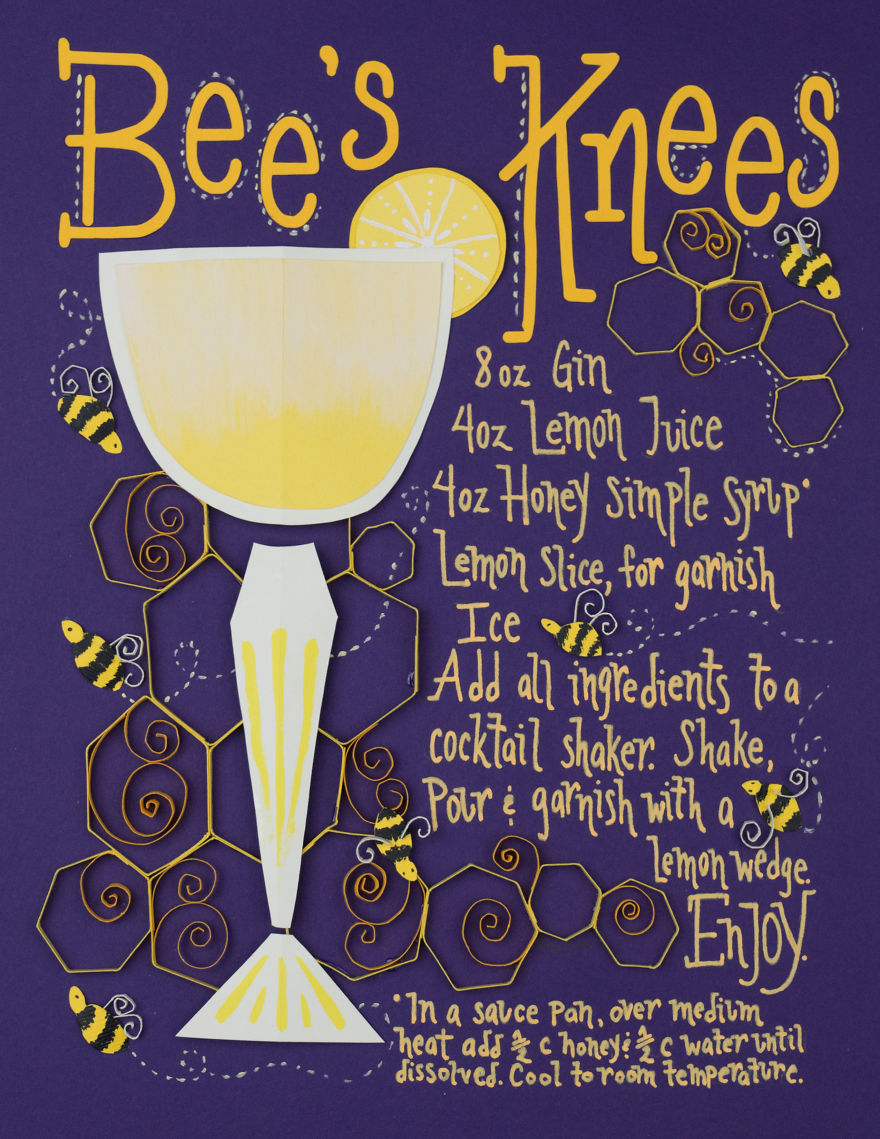 Bee's Knees
8oz Gin
4oz Lemon Juice
4oz Honey Simple Syrup*
Lemon Slice, for garnish
Ice
Add all ingredients to a
cocktail shaker. Shake,
Pour & garnish with a
Lemon wedge.
Enjoy.
*In a sauce pan, over medium
heat add ½ c honey & ½ c water until
dissolved. Cool to room temperature.